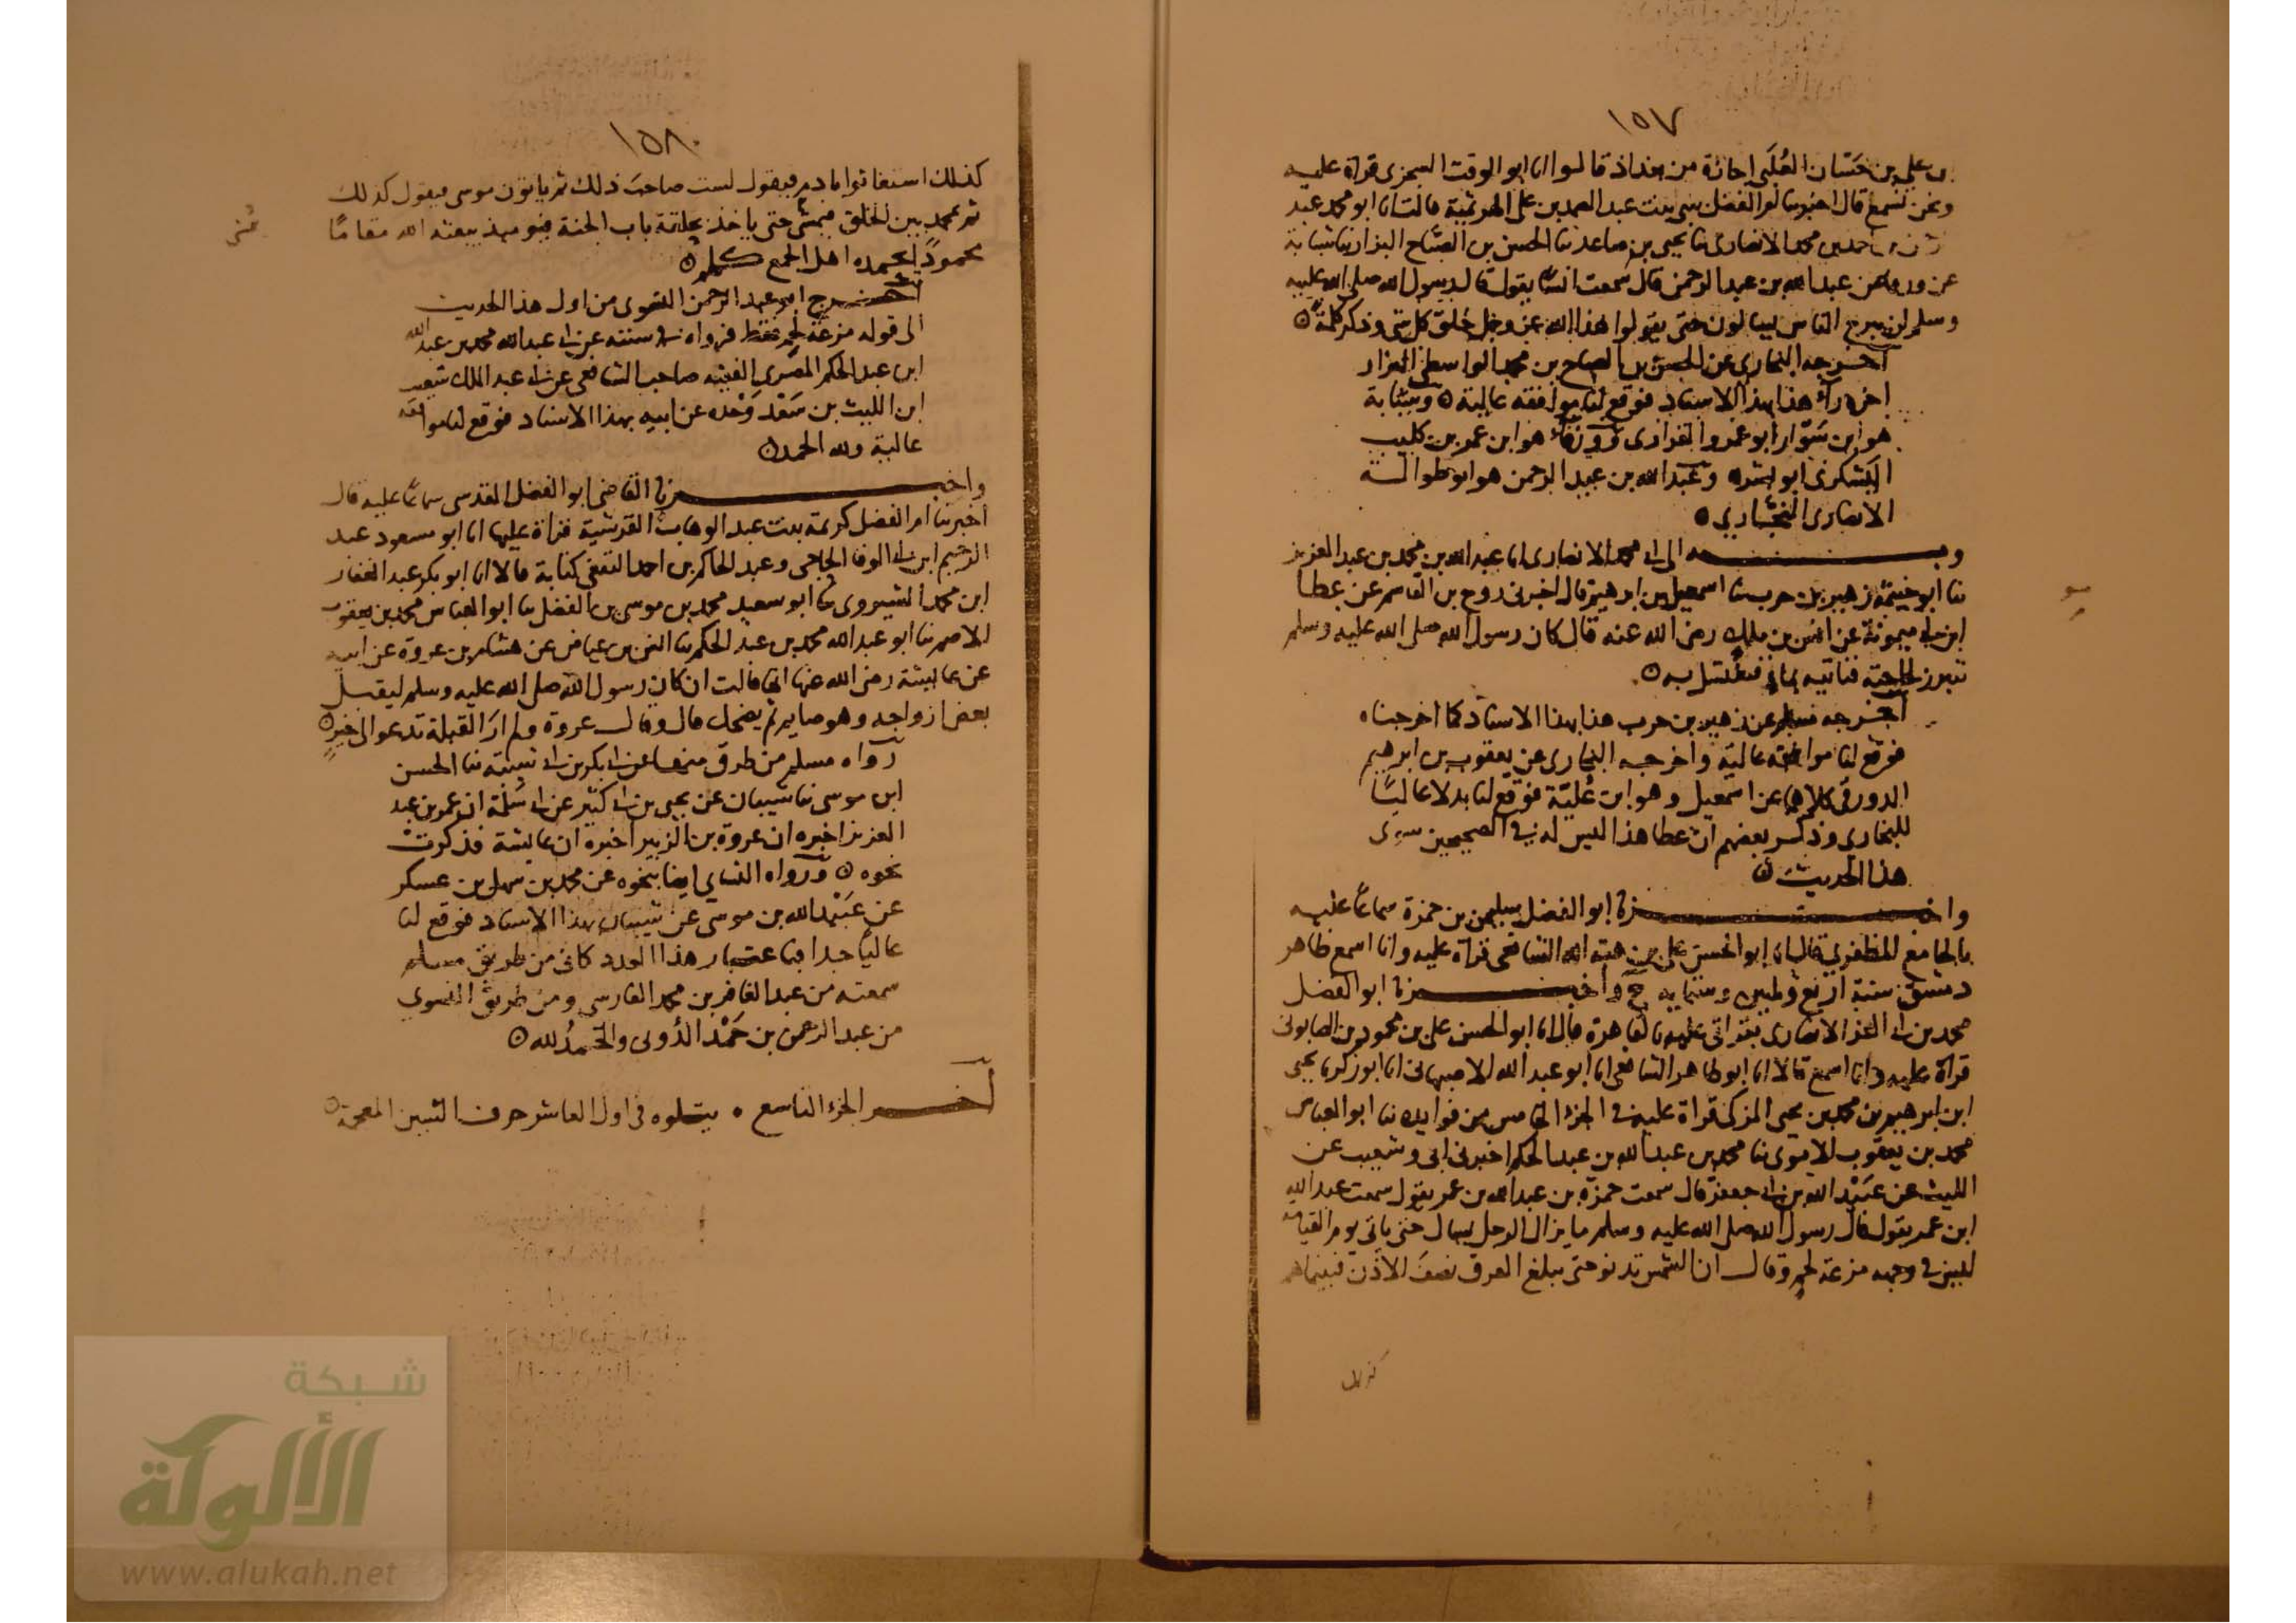 ١٥٧
بن علي بن حسان العُلَبي اجازة من بغداذ قالوا انا ابو الوقت السجزي قراة عليه
ونحن نسمع قال اخبرتنا ام الفضل بيبى بنت عبد الصمد بن علي الهرثمية قالت انا ابو محمد عبد
احمد بن محمد الانصاري نا يحيى بن صاعد نا الحسن بن الصباح البزار نا شبابة
عن ورقا عن عبد الله بن عبد الرحمن قال سمعت انسًا يقول قال رسول الله صلى الله عليه
وسلم لن يبرح الناس يسالون حتى يقولوا هذا الله عز وجل خلق كل شي وذكر كلمة
اخرجه البخاري عن الحسن بن الصباح بن محمد الواسطي البزار
هذا بهذا الاسناد فوقع لنا موافقة عالية وشبابة
هو ابن سَوّار ابو عمرو الفزاري وورقاء هو ابن عمر بن كليب
اليَشكري ابو بشر وعبد الله بن عبد الرحمن هو ابو طوالة
الانصاري النجّاري
وبه الى ابي محمد الانصاري انا عبد الله بن محمد بن عبد العزيز
نا ابو خيثمة زهير بن حرب نا اسمعيل بن ابرهيم قال اخبرني روح بن القاسم عن عطا
ابن ابي ميمونة عن انس بن ملك رضي الله عنه قال كان رسول الله صلى الله عليه وسلم
تبرز لحاجته فناتيه بماء فيغتسل به
اخرجه مسلم عن زهير بن حرب هذا بهذا الاسناد كما اخرجناه
فوقع لنا موافقة عالية واخرجه البخاري عن يعقوب بن ابرهيم
الدورقي كلاهما عن اسمعيل وهو ابن عُليّة فوقع لنا بدلا عاليًا
للبخاري وذكر بعضهم ان عطا هذا ليس له في الصحيحين سوى
هذا الحديث
واخبرنا ابو الفضل سليمن بن حمزة سماعًا عليه
بالجامع المظفري قال انا ابو الحسن علي بن هبة الله الشافعي قراة عليه وانا اسمع ظاهر
دمشق سنة اربع وثلثين وستماية ح واخبرنا ابو الفضل
محمد بن ابي العز الانصاري بقراتي عليه بالقاهرة قال انا ابو الحسن علي بن محمود بن الصابوني
قراة عليه وانا اسمع قالا انا ابو طاهر الشافعي انا ابو عبد الله الاصبهاني انا ابو زكريا يحيى
ابن ابرهيم بن محمد بن يحيى المزكي قراة عليه في الجزء الخامس من فوايده نا ابو العباس
محمد بن يعقوب الاموي نا محمد بن عبد الله بن عبد الحكم اخبرني ابي وشعيب عن
الليث عن عُبَيْد الله بن ابي جعفر قال سمعت حمزة بن عبد الله بن عمر يقول سمعت عبد الله
ابن عمر يقول قال رسول الله صلى الله عليه وسلم ما يزال الرجل يسال حتى ياتي يوم القيامة
ليس في وجهه مزعة لحم وقال ان الشمس تدنو حتى يبلغ العرق نصف الاذن فبيناهم
كذلك
١٥٨
كذلك استغاثوا بادم فيقول لست صاحب ذلك ثم ياتون موسى فيقول كذلك
ثم محمد بين الخلق فيمشي حتى ياخذ بحلقة باب الجنة فيومئذ يبعثه الله مقامًا
محمودًا يحمده اهل الجمع كلهم
اخرج ابو عبد الرحمن النسوي من اول هذا الحديث
الى قوله مزعة لحم فقط فرواه في سننه عن ابي عبد الله محمد بن عبد الله
ابن عبد الحكم المصري الفقيه صاحب الشافعي عن ابي عبد الملك شعيب
ابن الليث بن سَعْد وَحْده عن ابيه بهذا الاسناد فوقع لنا موافقة
عالية ولله الحمد
واخبرنا القاضي ابو الفضل المقدسي سماعًا عليه قال
اخبرتنا ام الفضل كريمة بنت عبد الوهاب القرشية قراة عليها انا ابو مسعود عبد
الرحيم ابن ابي الوفا الحاجي وعبد الحاكم بن احمد الثقفي كتابة قالا انا ابو بكر عبد الغفار
ابن محمد الشيروي نا ابو سعيد محمد بن موسى بن الفضل نا ابو العباس محمد بن يعقوب
الاصم نا ابو عبد الله محمد بن عبد الحكم نا انس بن عياض عن هشام بن عروة عن ابيه
عن عايشة رضي الله عنها انها قالت ان كان رسول الله صلى الله عليه وسلم ليقبل
بعض ازواجه وهو صايم ثم يضحك قال وقال عروة ولم ارَ القبلة تدعو الى خيرٍ
رواه مسلم من طرق منها عن ابي بكر بن ابي شيبة نا الحسن
ابن موسى نا شيبان عن يحيى بن ابي كثير عن ابي سَلمة ان عمر بن عبد
العزيز اخبره ان عروة بن الزبير اخبره ان عايشة فذكرتْ
نحوه ورواه النساي ايضا بنحوه عن محمد بن سهل بن عسكر
عن عُبَيْد الله بن موسى عن شيبان بهذا الاسناد فوقع لنا
عاليًا جدا فباعتبار هذا العدد كاني من طريق مسلم
سمعته من عبد الغافر بن محمد الفارسي ومن طريق النسوي
من عبد الرحمن بن حَمْد الدُوني والحَمدُ لله
آخر الجزء التاسع يتلوه في اول العاشر حرف الشين المعجمة
شبكة
الألوكة
www.alukah.net